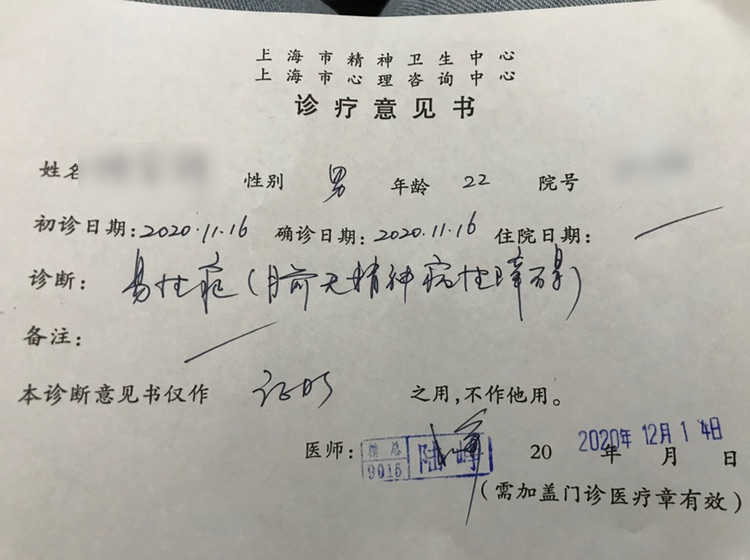 上海市精神卫生中心
上海市心理咨询中心
诊疗意见书
姓名 性别 男 年龄 22 院号
初诊日期:2020.11.16 确诊日期:2020.11.16 住院日期:
诊断: 易性症(目前无精神病性障碍)
备注:
本诊断意见书仅作 证明 之用,不作他用。
医师: 精总 9015 陆峥 20 年 月 日 2020年12月14日
(需加盖门诊医疗章有效)